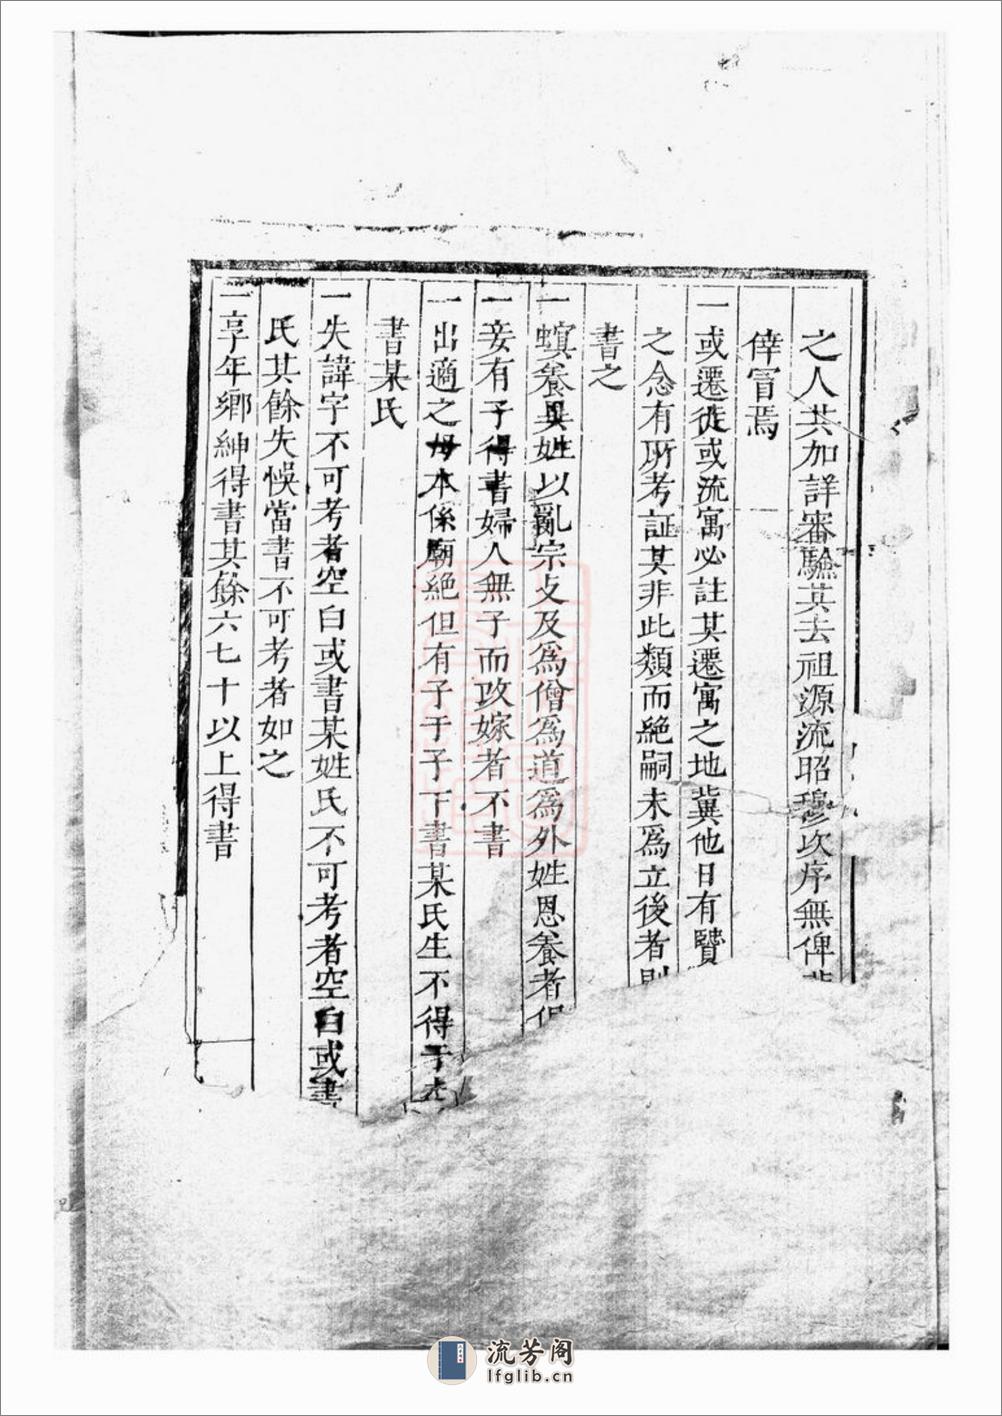 之人共加詳審驗其去祖源流昭穆次序無俾
倖冒焉
一或遷徙或流寓必註其遷寓之地冀他日有覽
之念有所考証其非此類而絶嗣未為立後者則
書之
一螟養異姓以亂宗攴及為僧為道為外姓恩養者俱
一妾有子得書婦人無子而改嫁者不書
一出適之母本係廟絶但有子于子下書某氏生不得于
書某氏
一失諱字不可考者空白或書某姓氏不可考者空白或書
氏其餘失悞當書不可考者如之
一享年鄉紳得書其餘六七十以上得書
流芳阁
lfglib.cn